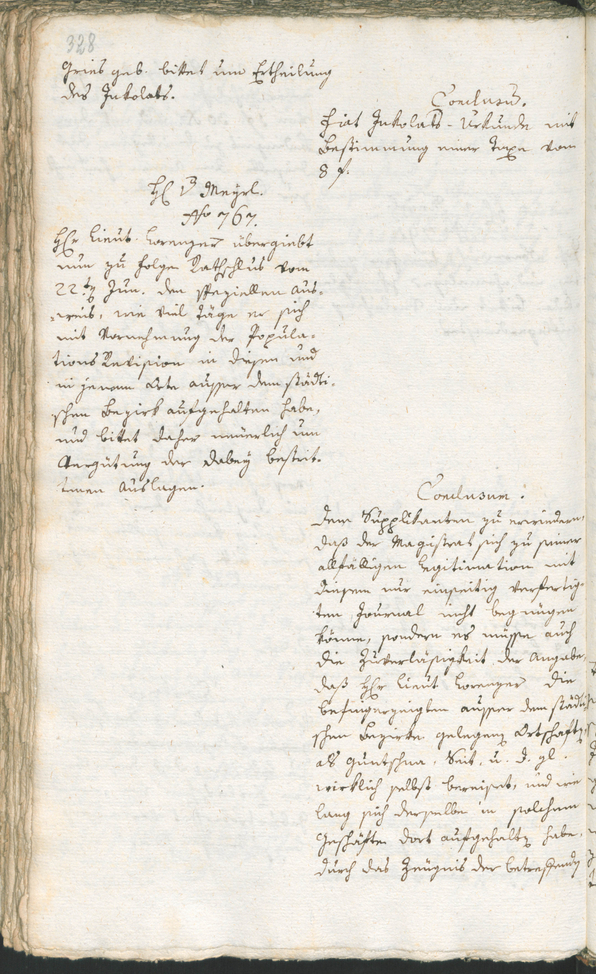 328
Gries geb. bittet um Ertheilung
des Inkolats.
Conclusū.
Fiat Inkolats-Urkunde mit
Bestimmung einer Taxe vom
8 f.
H. v Meyrl.
No 767.
Hr Lieut. Lorenzer übergiebt
nun zu Folge Rathschlus vom
22ten Jun. den speziellen Aus-
weis, wie viel Täge er sich
mit Vornehmung der Popula-
tions Revision in diesem und
in jenem Orte ausser dem städti-
schen Bezirk aufgehalten habe,
und bittet daher neuerlich um
Vergütung der dabey bestrit-
tenen Auslagen.
Conclusum:
Dem Supplikanten zu erwiedern,
daß der Magistrat sich zu seiner
allfälligen Legitimation mit
diesem nur einseitig verfertig-
ten Journal nicht begnügen
könne, sondern es müsse auch
die Zuverläßigkeit der Angabe,
daß Hr Lieut Lorenzer die
befingerzeigten ausser dem städti-
schen Bezirke gelegenen Ortschaften
als Guntschna, Seit, u. d. gl.
wirklich selbst bereiset, und wie
lang sich derselbe in solchem
Geschäfte dort aufgehalten habe,
durch das Zeugnis der betreffenden